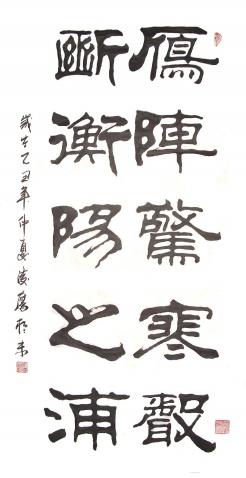 鴈陣驚寒聲
斷衡陽之浦
歲在乙丑年仲夏